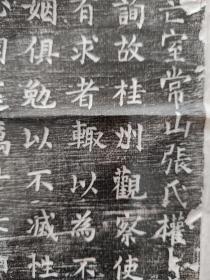 亡室常山張氏權
詢故桂州觀察使
有求者輙以為不
姻俱勉以不滅性